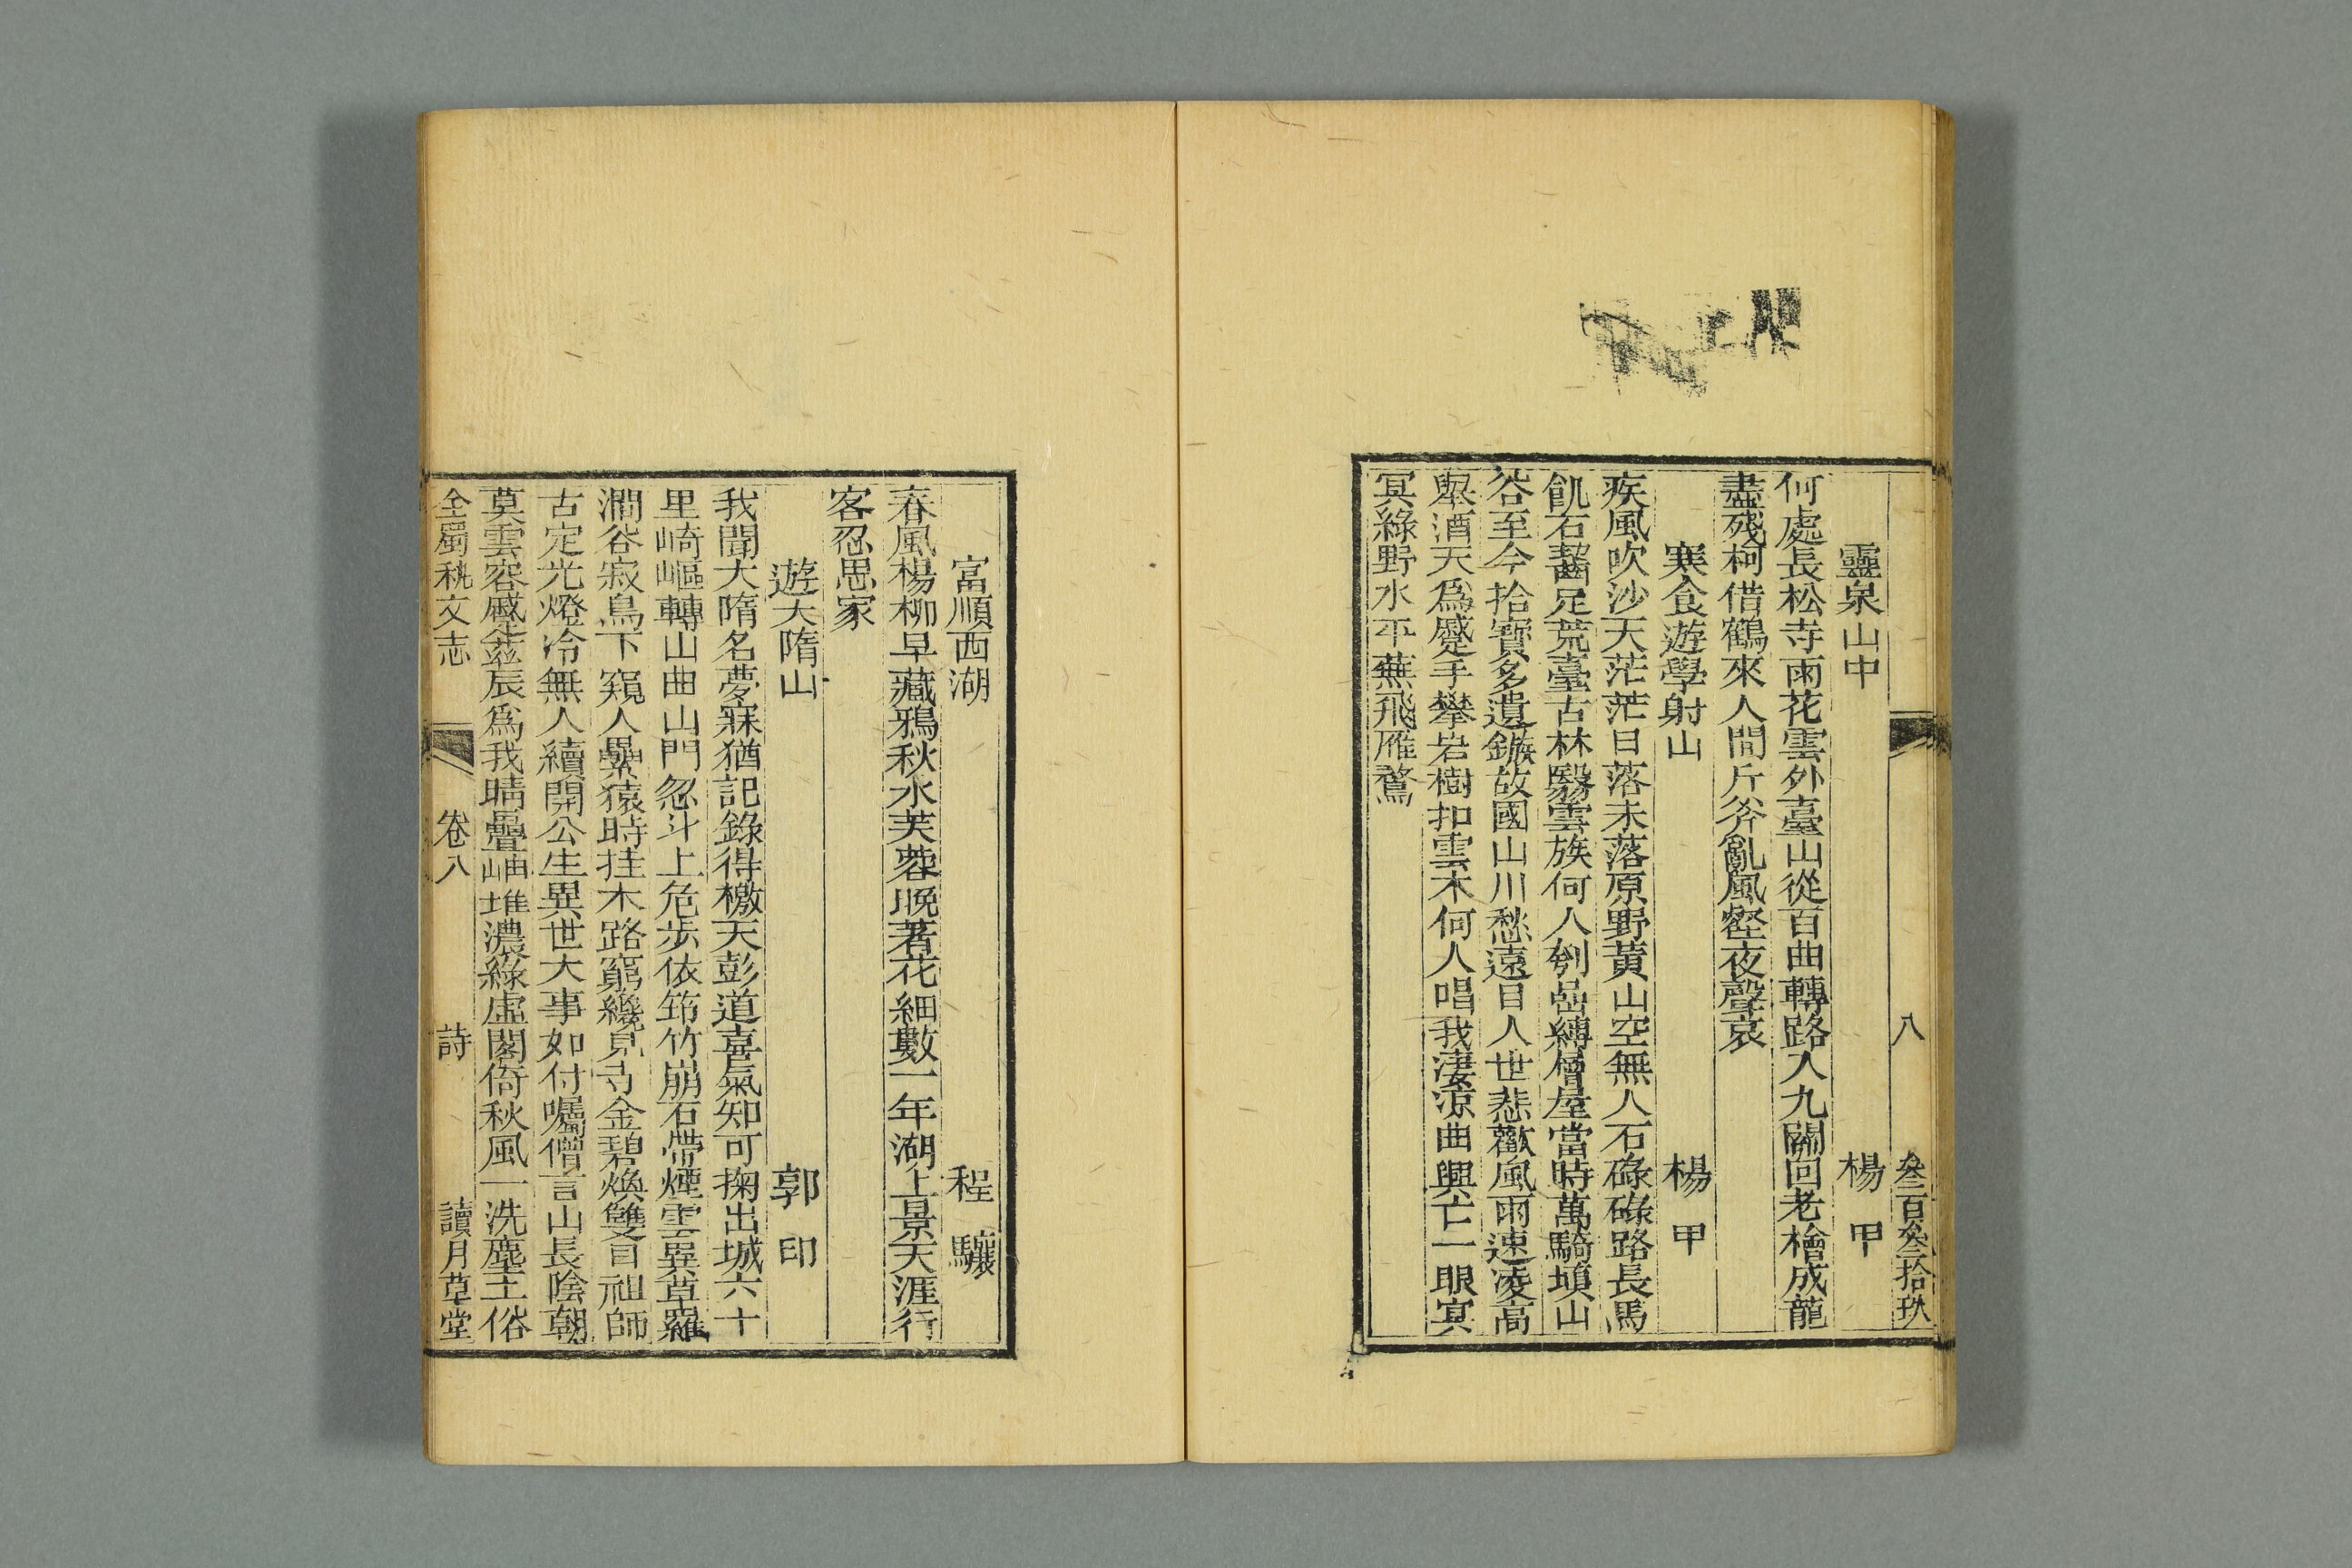 八 叄百叄拾玖
靈泉山中 楊甲
何處長松寺雨花雲外臺山從百曲轉路入九關回老檜成龍
盡殘柯借鶴來人間斤斧亂風壑夜聲哀
寒食遊學射山 楊甲
疾風吹沙天茫茫日落未落原野黃山空無人石碌碌路長馬
飢石齧足荒臺古林翳雲族何人刳嵒縛層屋當時萬騎塡山
谷至今拾寶多遺鏃故國山川愁遠目人世悲歡風雨速凌高
舉酒天爲蹙手攀岩樹扣雲木何人唱我淒涼曲興亡一眼冥
冥綠野水平蕪飛雁鶩
富順西湖 程驤
春風楊柳早藏鴉秋水芙蓉晚著花細數一年湖上景天涯行
客忍思家
遊大隋山 郭印
我聞大隋名夢寐猶記錄得檄天彭道喜氣知可掬出城六十
里崎嶇轉山曲山門忽斗上危步依筇竹崩石帶煙雲異草羅
澗谷寂鳥下窺人纍猿時挂木路窮纔見寺金碧煥雙目祖師
古定光燈冷無人續開公生異世大事如付囑僧言山長陰朝
莫雲容蹙茲辰爲我晴疊岫堆濃綠虛閣倚秋風一洗塵土俗
全蜀秇文志 卷八 詩 讀月草堂